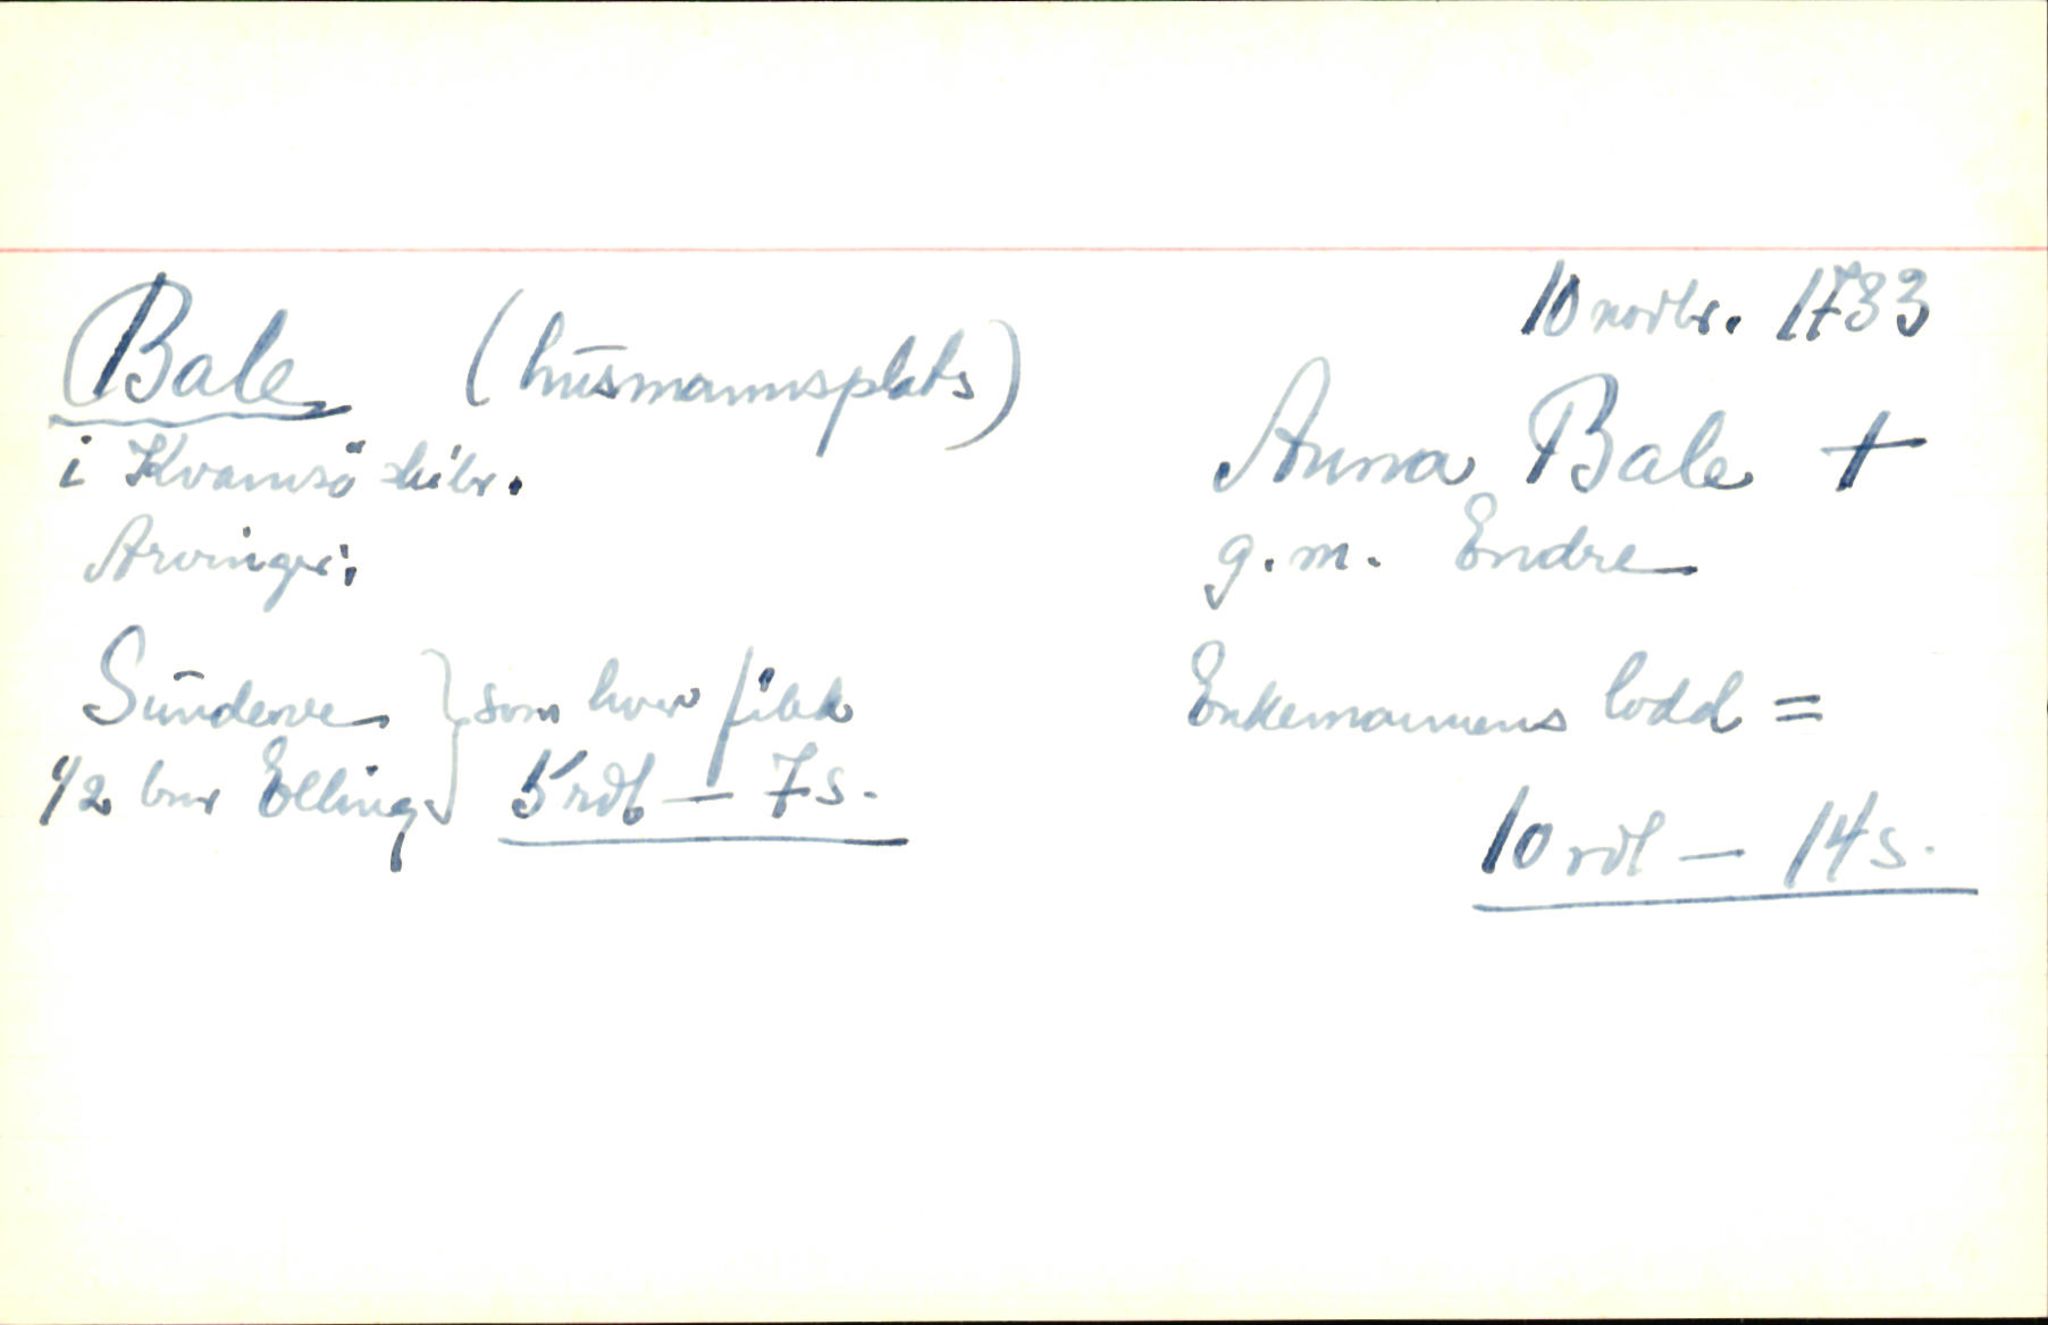 10 novbr. 1733
Bale (husmannsplats)
i Kvamsö skibr.
Arvinger:
Sunderve } som hver fikk
1/2 bror Elling } 5 rdl — 7 s.
Anna Bale +
g. m. Endre
Enkemannens lodd =
10 rdl — 14 s.